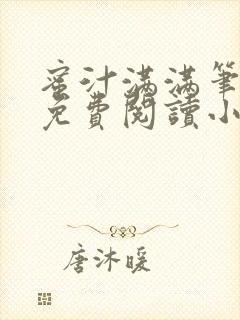 蜜汁满满筆
免費閱讀小
唐沐暖